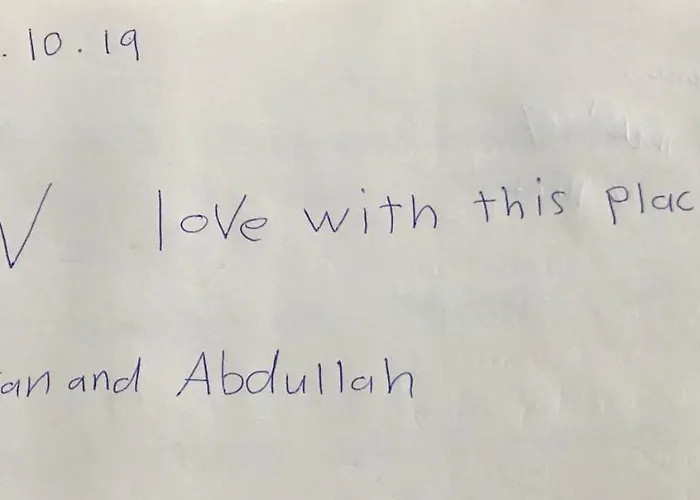 . 10 . 19
love with this plac
an and Abdullah